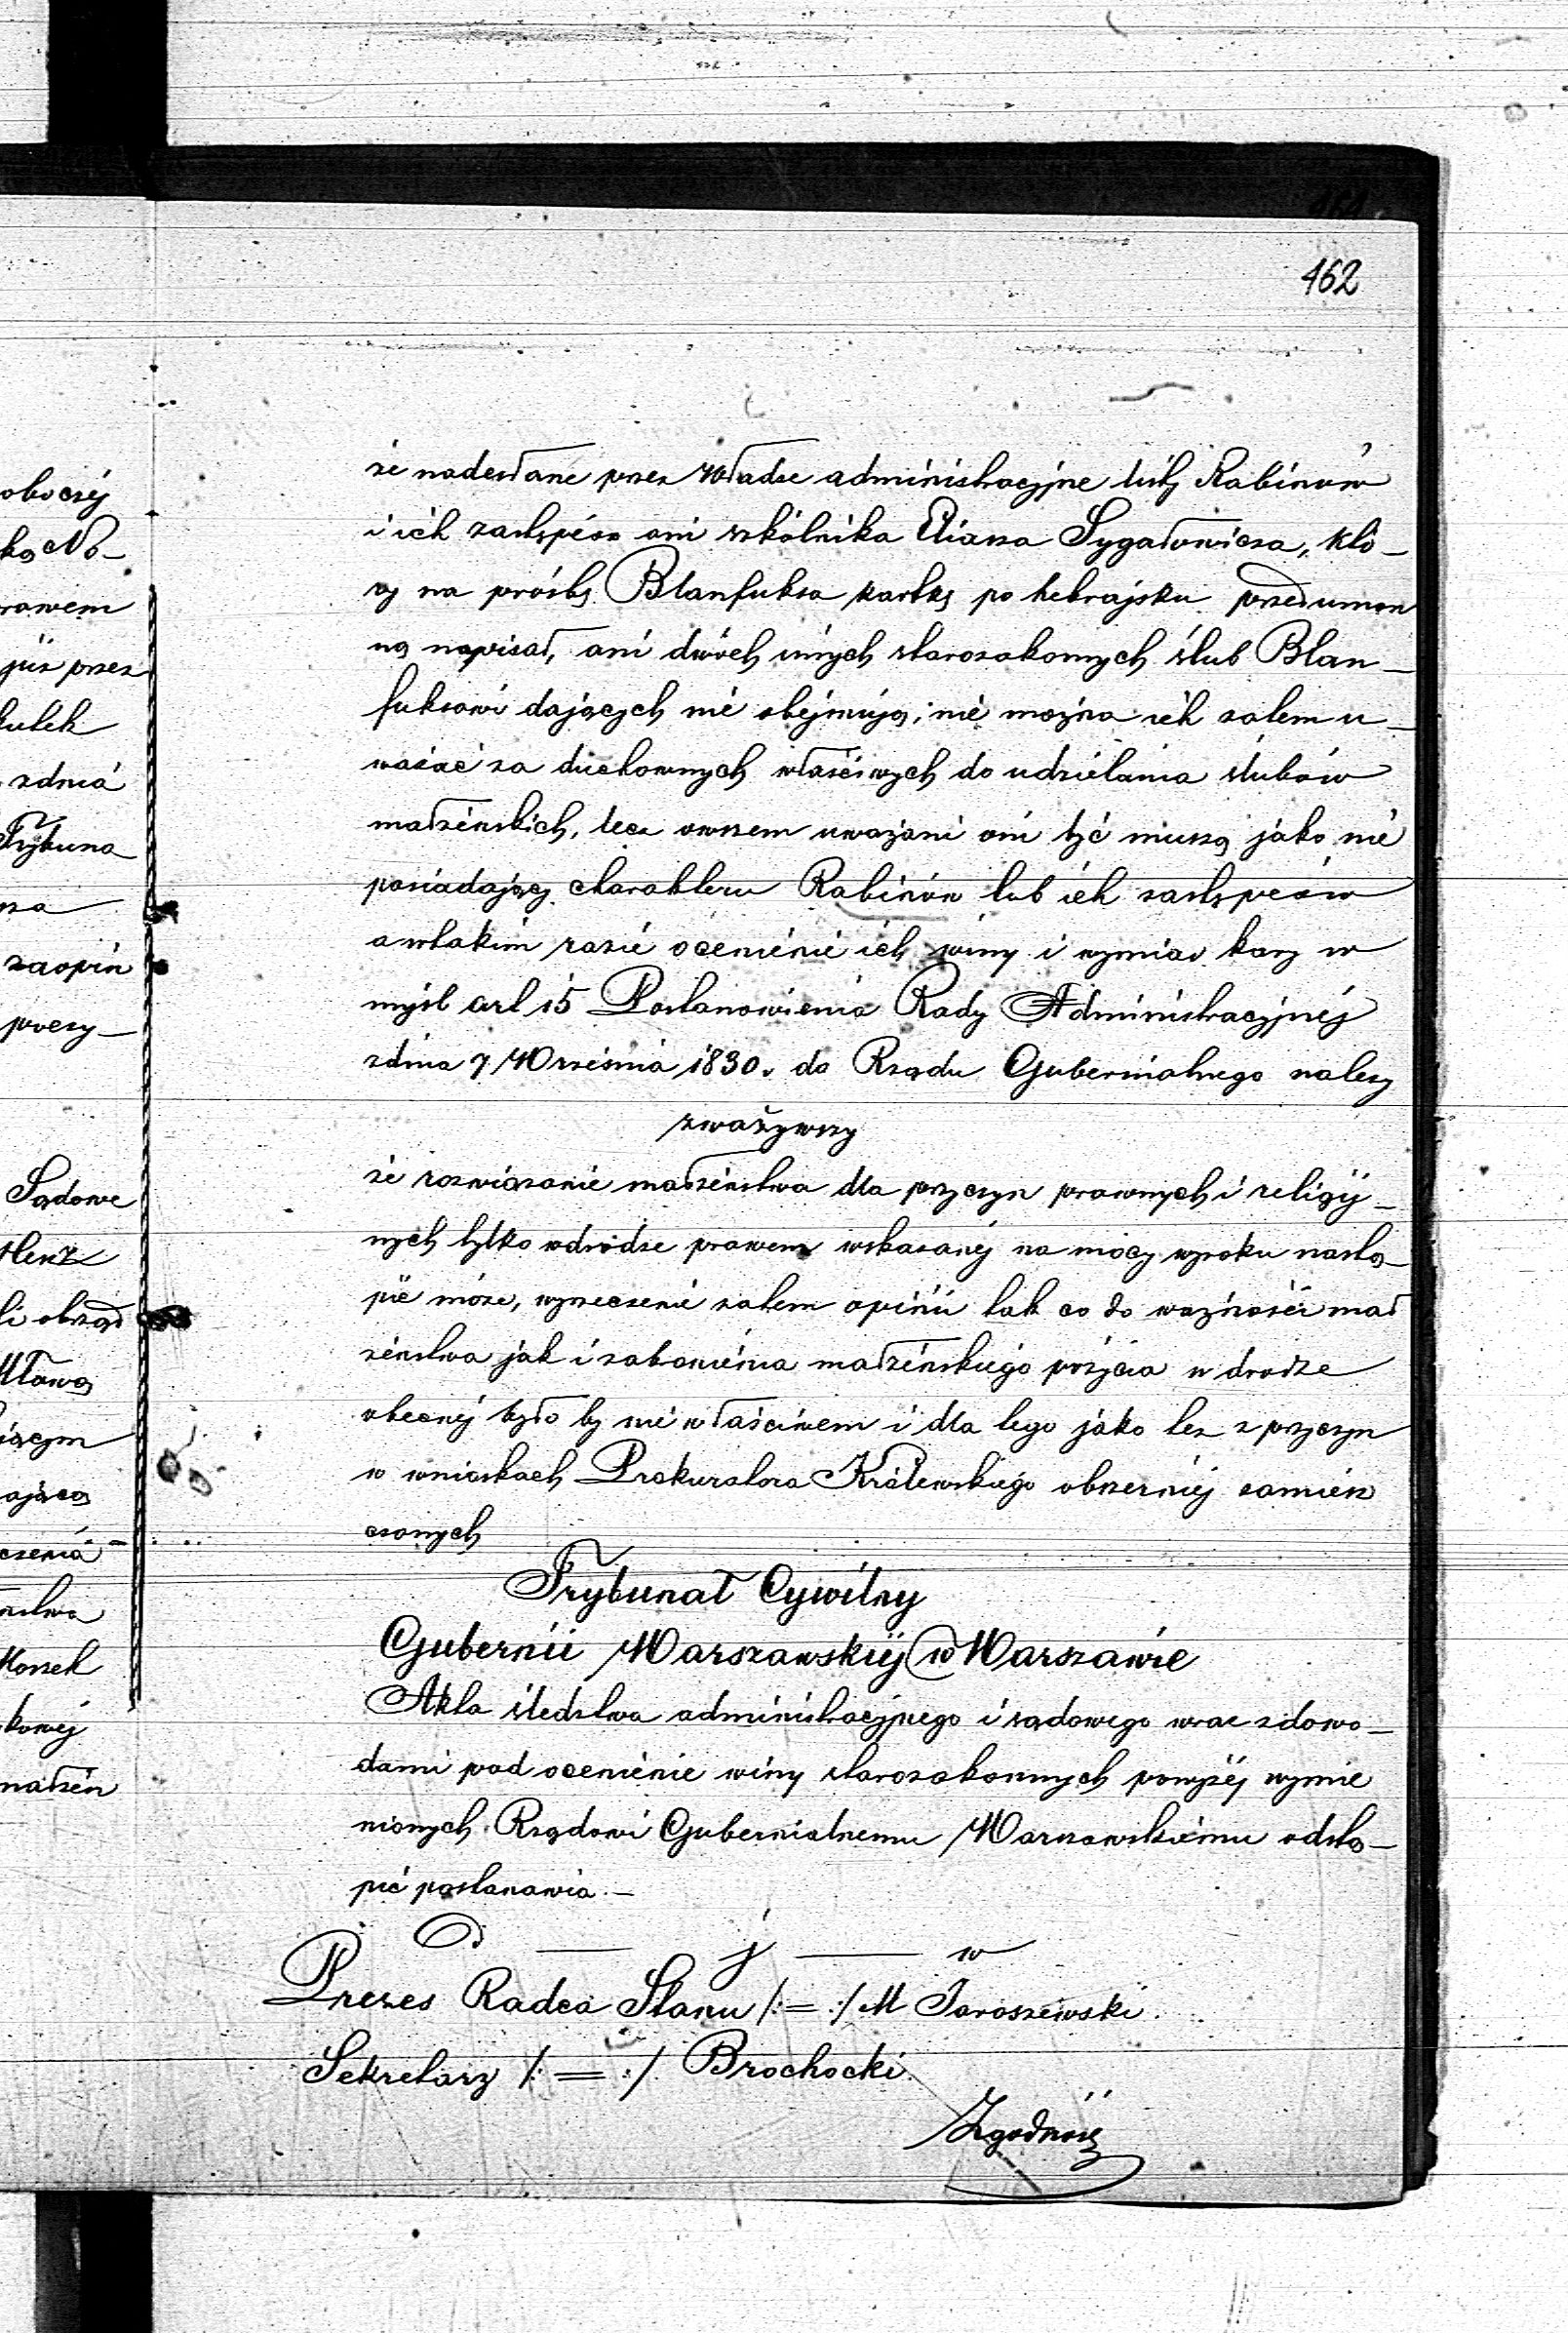 462
że nadesłane przez Władze administracyjne listy Rabinów
i ich zastępców ani szkólnika Eliasza Sygałowicza, któ-
ry na prośbę Blanfuksa kartkę po hebrajsku przedumon
ną napisał, ani dwóch innych starozakonnych ślub Blan-
fuksowi dających nie obejmują; nie można ich zatem u-
ważać za duchownych właściwych do udzielania ślubów
małżeńskich, lecz owszem uważani oni być muszą jako nie
posiadający charakteru Rabinów lub ich zastępców
a wtakim razie ocenienie ich winy i wymiar kary w
myśl art 15 Postanowienia Rady Administracyjnéj
zdnia 7 Września 1830. do Rządu Gubernialnego należy
zważywszy
że rozwiązanie małżeństwa dla przyczyn prawnych i religij-
nych tylko wdrodze prawem wskazanéj na mocy wyroku nastą-
pić może, wyrzeczenie zatem opinii tak co do ważności mał
żeństwa jak i zabronienia małżeńskiego pożycia w drodze
obecnéj było by nie właściwem i dla tego jako też z przyczyn
w wnioskach Prokuratora Królewskiego obszerniéj zamiesz
czonych
Trybunał Cywilny
Gubernii Warszawskiéj w Warszawie
Akta śledztwa administracyjnego i sądowego wraz zdowo-
dami pod ocenienie winy starozakonnych powyżéj wymie
nionych Rządowi Gubernialnemu Warszawskiemu odstą-
pić postanawia.-
O — j — w
Prezes Radca Stanu /:=:/ M Jaroszewski.
Sekretarz /:=:/ Brochocki.
Zgodność
oboczéj
ką No-
rawem
już przez
kutek
zdnia
Trybuna
zaopin
przeny-
Sądowe
li obrząd
Mławą
ającą
czenia
ństwa
kowej
małżeń